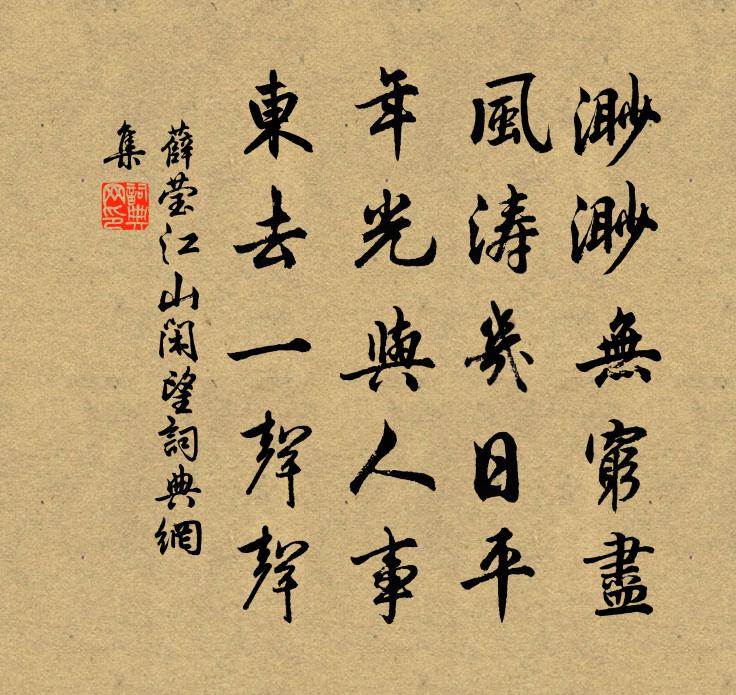 渺渺無窮盡
風濤幾日平
年光與人事
東去一聲聲
薛瑩江山閑望詞典網
集
詞典
网印